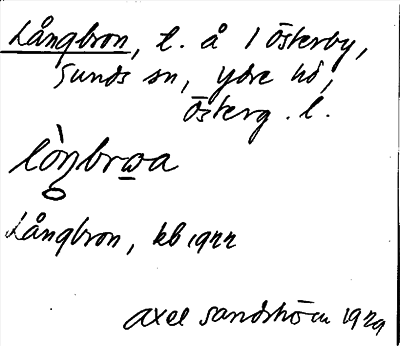 Långbron, t. å 1 Österby,
Sunds sn, Ydre hd,
Österg. l.
lòŋbrωa
Långbron, kb 1922
Axel Sandström 1929